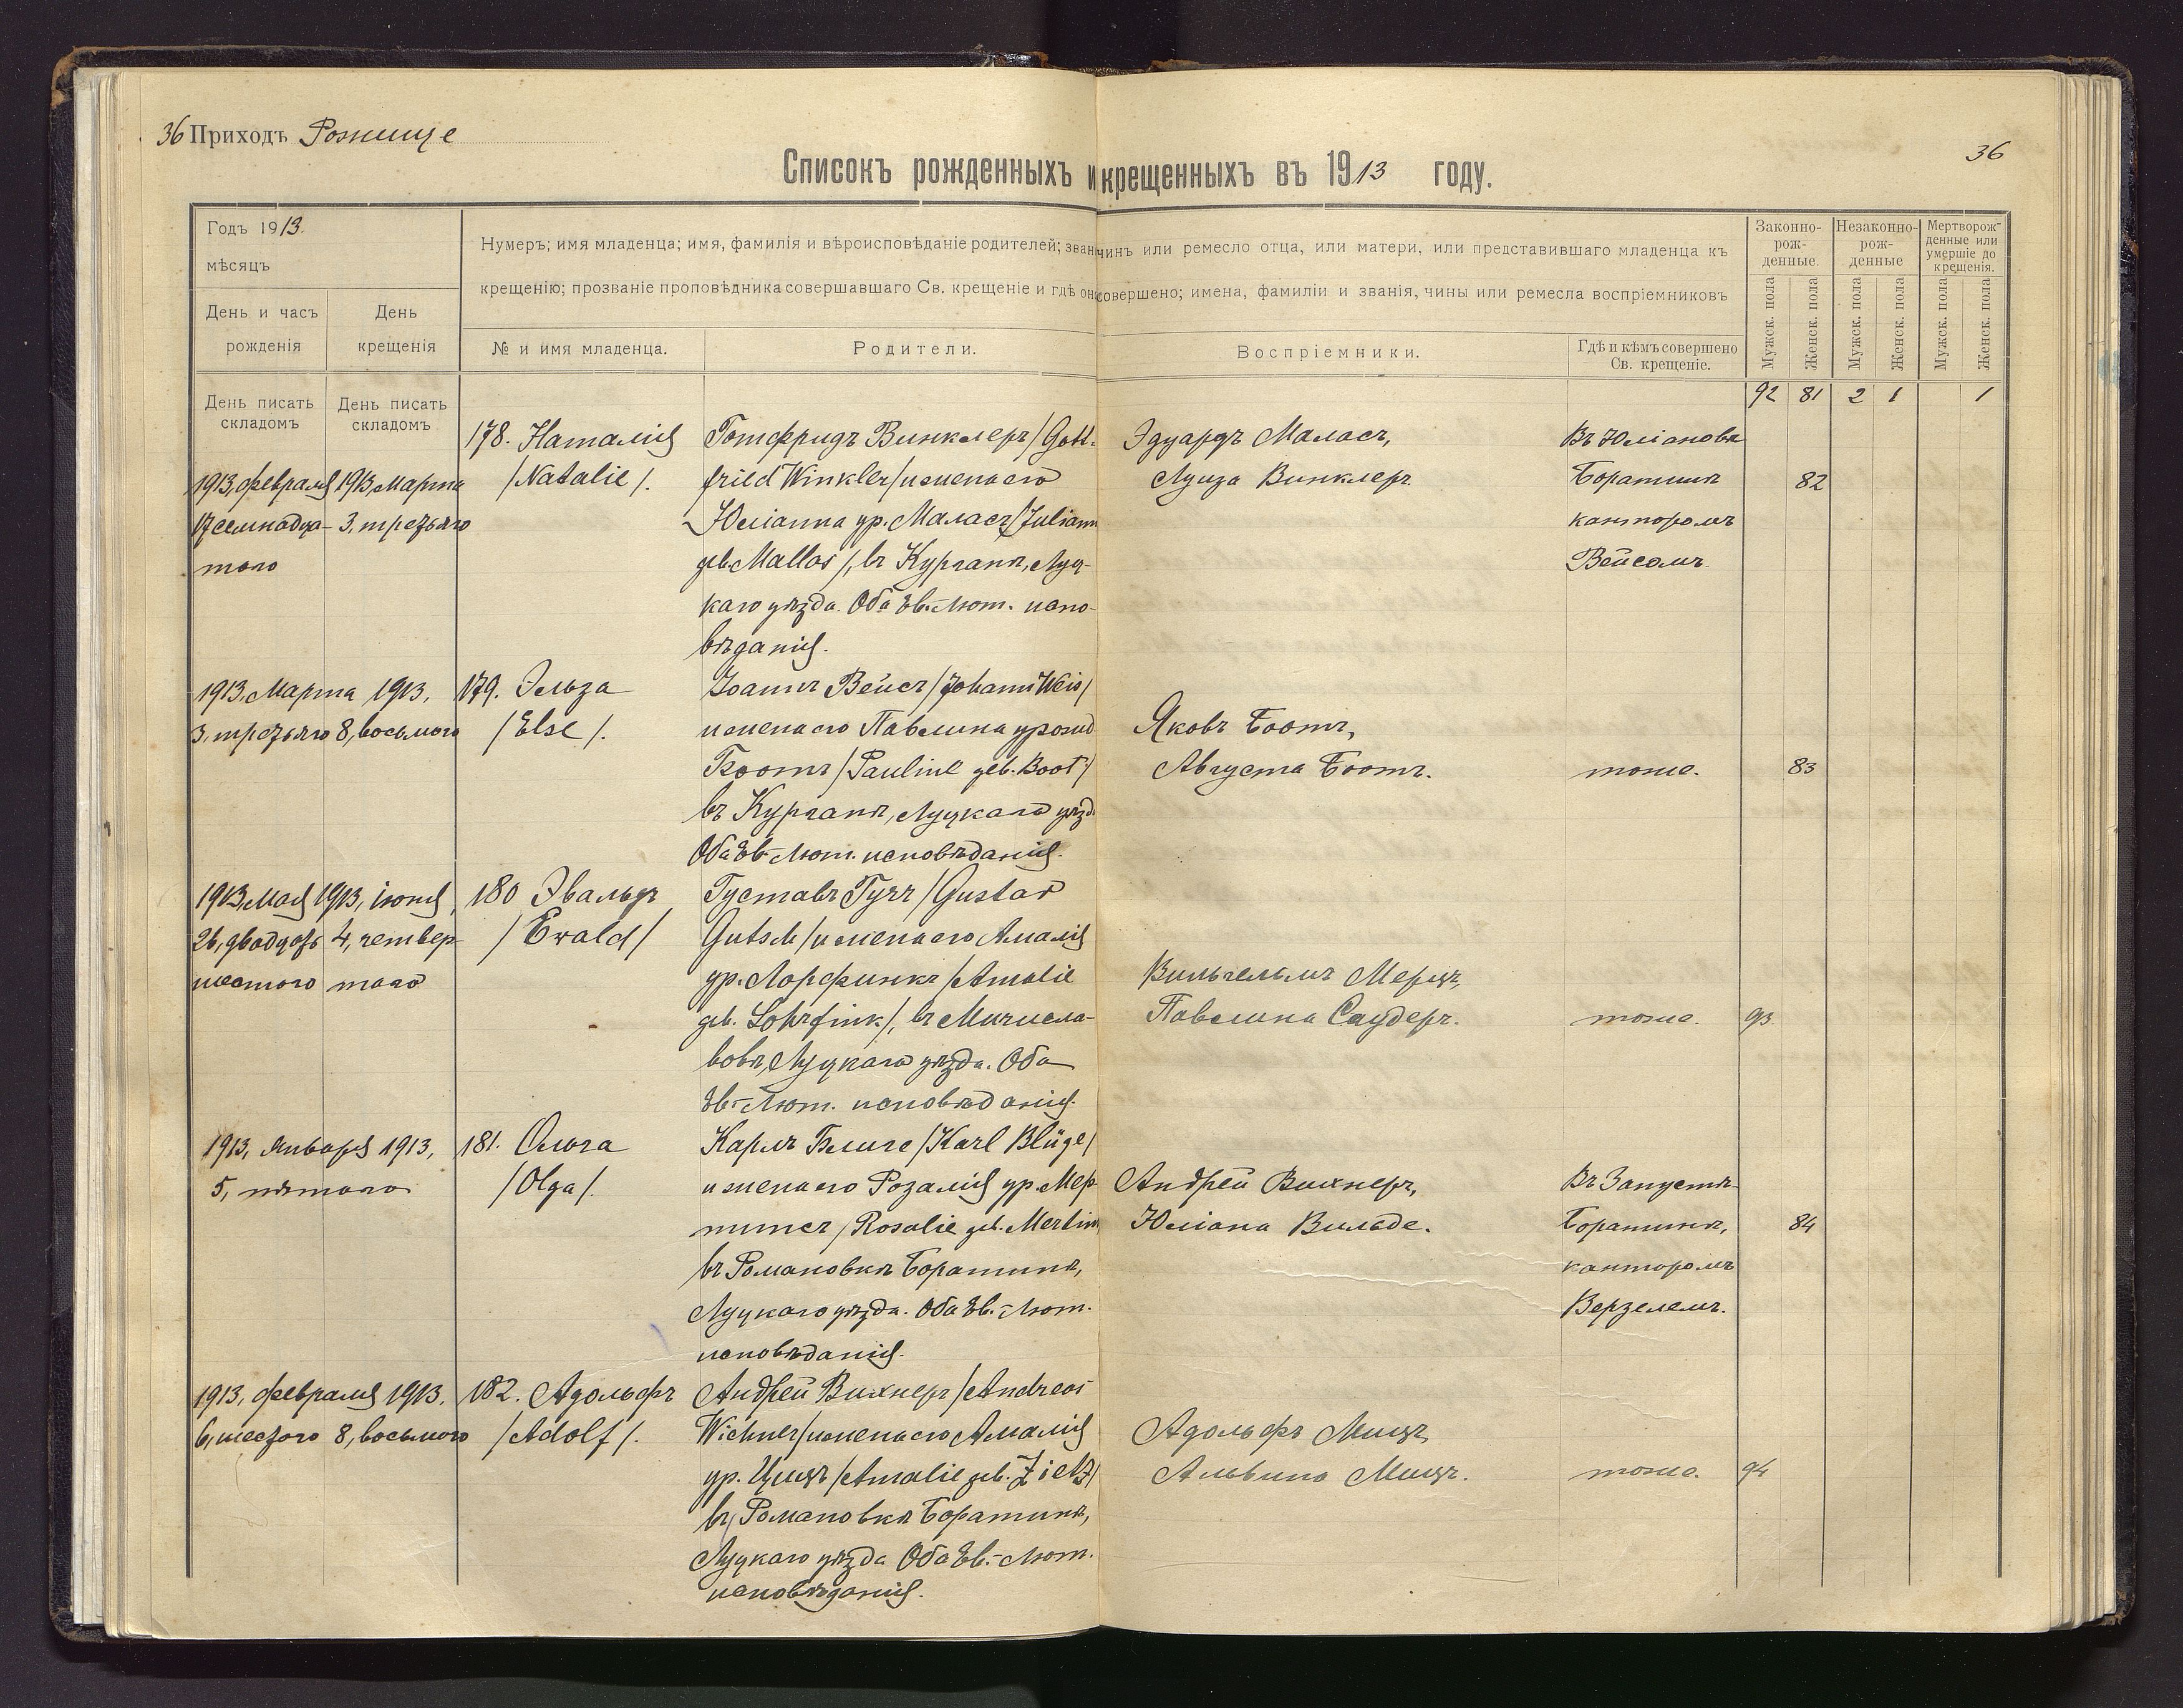 36 Приходъ Рожище
36
Списокъ рожденныхъ и крещенныхъ въ 1913 году.
Годъ 1913.
мѣсяцъ
День и часъ рожденія
День крещенія
День писать складомъ
День писать складомъ
Нумеръ; имя младенца; имя, фамилія и вѣроисповѣданіе родителей; зван чинъ или ремесло отца, или матери, или представившаго младенца къ
крещенію; прозваніе проповѣдника совершавшаго Св. крещеніе и гдѣ оно совершено; имена, фамиліи и званія, чины или ремесла воспріемниковъ
№ и имя младенца.
Родители.
Воспріемники.
Гдѣ и кѣмъ совершено
Св. крещеніе.
Законно-
рож-
денные.
Незаконно-
рож-
денные
Мертворож-
денные или
умершіе до
крещенія.
Мужск. пола
Женск. пола
Мужск. пола
Женск. пола
Мужск. пола
Женск. пола
92 81 2 1 1
1913, февраля
17 семнадца-
таго
1913, Марта
3, третьяго
178. Наталія
/Natalie/.
Готфридъ Винклеръ /Gott-
fried Winkler/ и жена его
Юліанна ур. Маласъ /Juliann
geb. Mallas/, въ Курганѣ, Луц-
каго уѣзда. Оба Ев.-Лют. испо-
вѣданія.
Эдуардъ Маласъ,
Луиза Винклеръ.
Въ Юліановкѣ
Боратинѣ
канторомъ
Вейсомъ.
82
1913, Марта
3, третьяго
1913,
8, восьмого
179. Эльза
/Else/.
Іоаннъ Вейсъ /Johann Weis/
и жена его Павлина урожд
Боотъ /Pauline geb. Boot/
въ Курганѣ, Луцкаго уѣзд.
Оба Ев.-Лют. исповѣданія.
Яковъ Боотъ,
Августа Боотъ.
тоже.
83
1913, Мая
26, двадцать
шестого
1913, іюня,
4, четвер-
таго
180 Эвальдъ
/Ewald/
Густавъ Гучъ /Gustav
Gutsch/ и жена его Амалія
ур. Лорфинкъ /Amalie
geb. Lohrfink/, въ Мичисла-
вовѣ, Луцкаго уѣзда. Оба
Ев.-Лют. исповѣданія.
Вильгельмъ Мерцъ,
Павлина Саудеръ.
тоже.
93
1913, Января
5, пятаго
1913,
181. Ольга
/Olga/.
Карлъ Блиге /Karl Blüge/
и жена его Розалія ур. Мер-
тинсъ /Rosalie geb. Mertins
въ Романовкѣ Боратинѣ,
Луцкаго уѣзда. Оба Ев.-Лют.
исповѣданія.
Андрей Вихнеръ,
Юліана Вильде.
Въ Запустѣ-
Боратинѣ,
канторомъ
Верзелемъ.
84
1913, февраля
6, шестого
1913.
8, восьмого
182. Адольфъ
/Adolf/.
Андрей Вихнеръ /Andreas
Wichner/ и жена его Амалія
ур. Цицъ /Amalie geb. Zietz/
въ Романовкѣ Боратинѣ,
Луцкаго уѣзда Оба Ев.-Лют.
исповѣданія.
Адольфъ Мицъ,
Альвина Мицъ.
тоже.
94